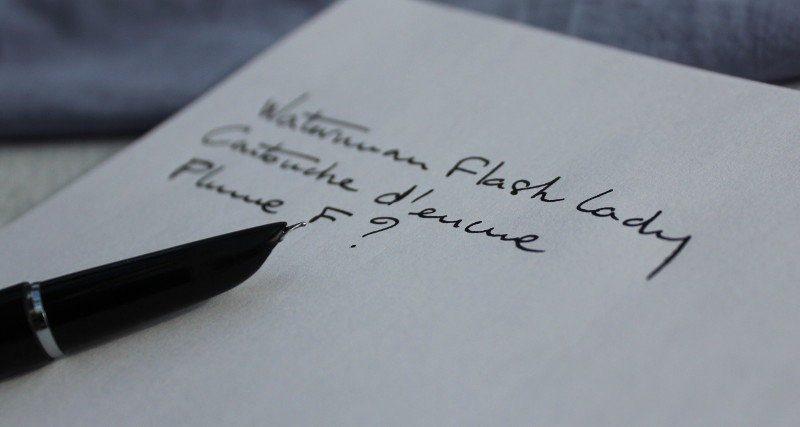 Waterman Flash lady
Cartouche d'encre
Plume F ?